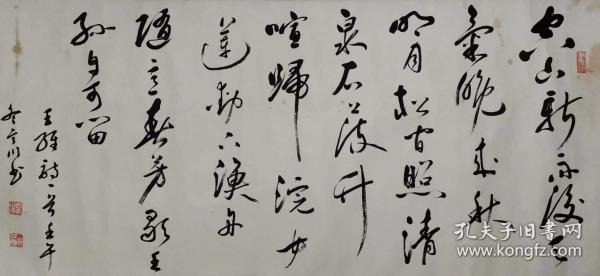 空山新雨後天
氣晚來秋
明月松間照清
泉石上流竹
喧歸浣女
蓮動下漁舟
隨意春芳歇王
孫自可留
王維詩一首壬午
冬
孔夫子旧书网
kongfz.com